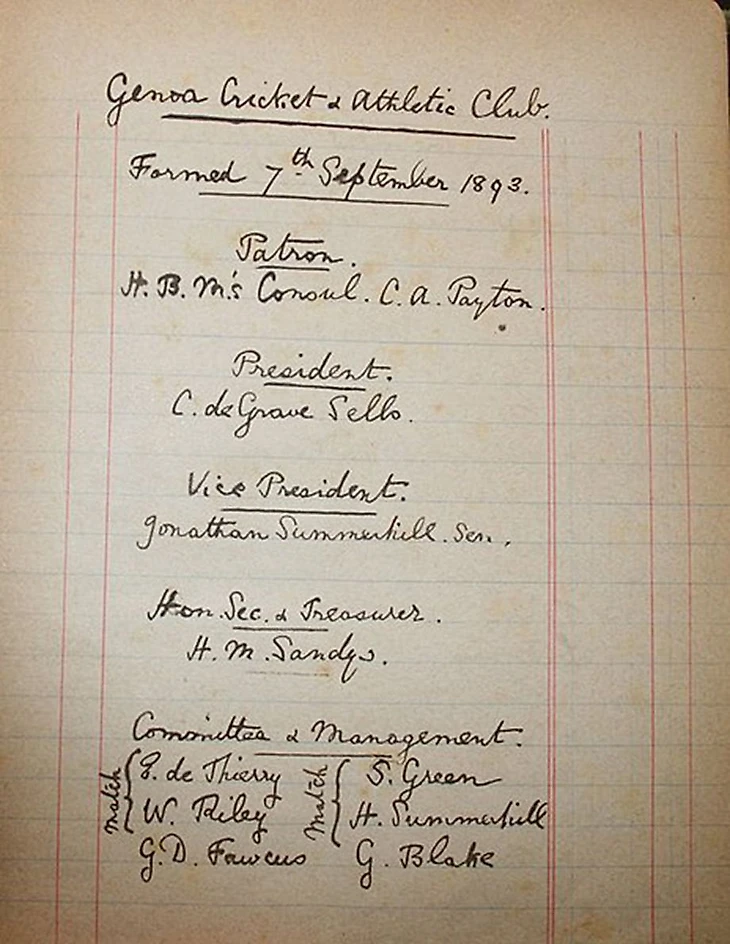 Genoa Cricket & Athletic Club.
Formed 7th September 1893.
Patron.
H. B. M's Consul. C. A. Payton.
President.
C. de Grave Sells.
Vice President.
Jonathan Summerhill. Sen.,
Hon. Sec. & Treasurer.
H. M. Sandys.
Committee & Management.
Match { de Thierry Match { S. Green
W. Riley H. Summerhill
G. D. Fawcus G. Blake